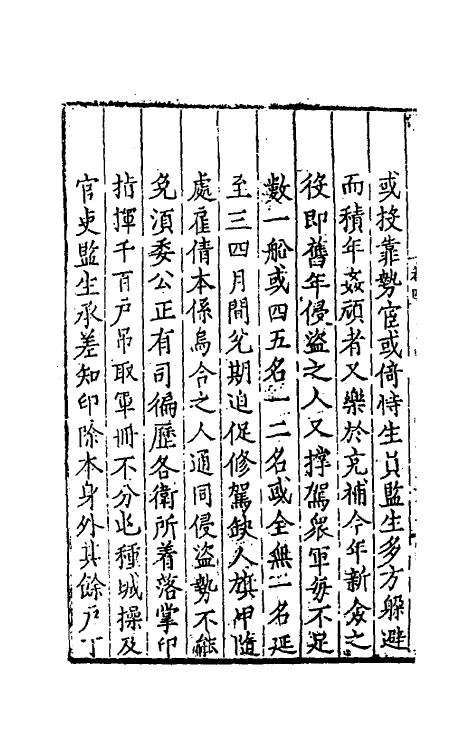 或投靠勢宦或倚恃生員監生多方躲避
而積年姦頑者又樂於充補今年新僉之
役即舊年侵盜之人又撑駕衆軍每不足
數一船或四五名一二名或全無一名延
至三四月間兌期迫促修駕缺人旗甲隨
處雇倩本係烏合之人通同侵盜勢不能
免須委公正有司徧歷各衛所着落掌印
指揮千百戶吊取軍冊不分屯種城操及
官吏監生承差知印除本身外其餘戶丁